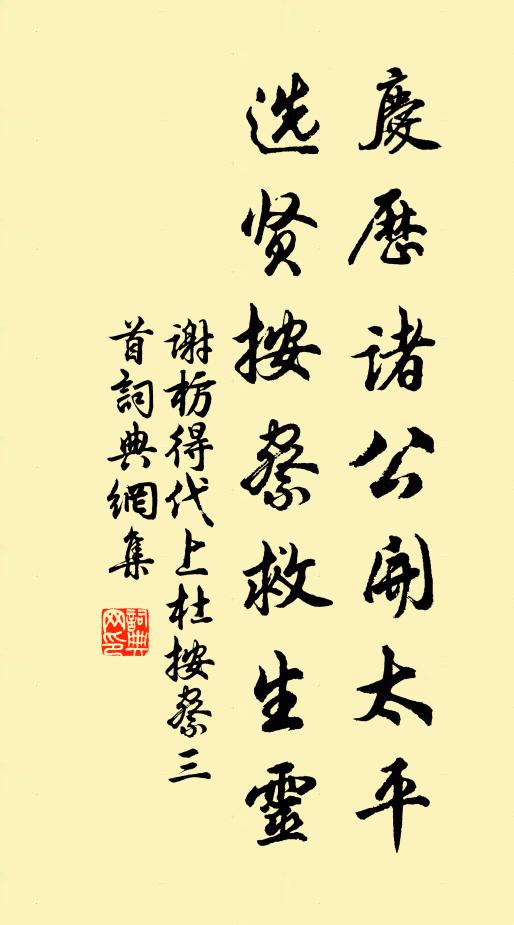 慶歷诸公開太平
选贤按察救生靈
谢枋得代上杜按察三
首詞典網集
詞典网印